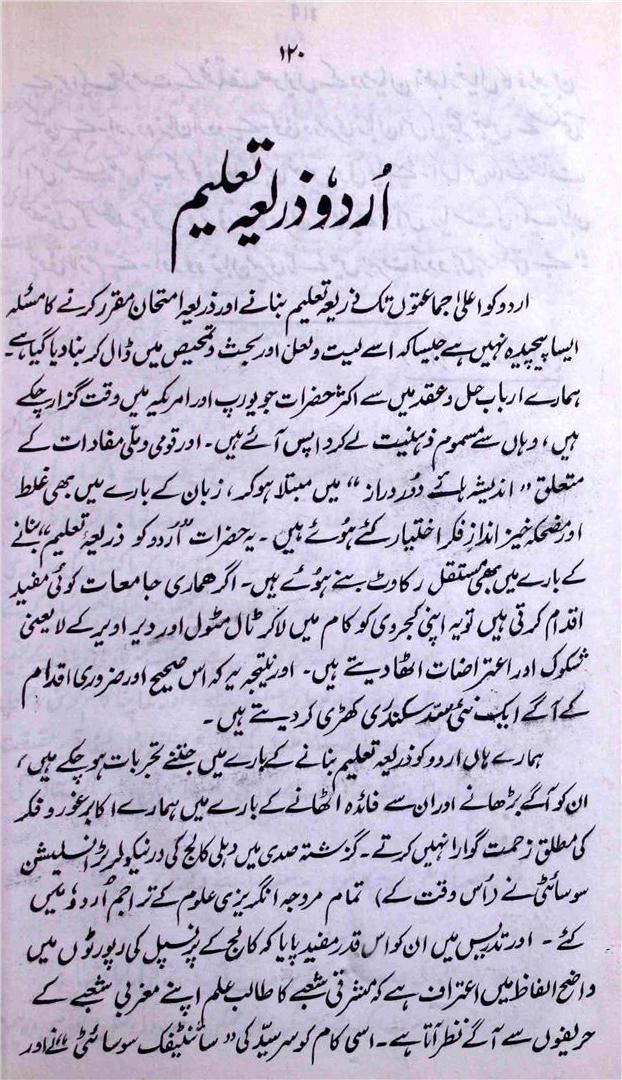 ۱۲۰
اُردو ذریعہ تعلیم
اردو کو اعلیٰ جماعتوں تک ذریعہ تعلیم بنانے اور ذریعہ امتحان مقرر کرنے کا مسئلہ
ایسا پیچیدہ نہیں ہے جیسا کہ اسے لیت و لعل اور بحث و تمحیص میں ڈال کر بنا دیا گیا ہے۔
ہمارے ارباب حل و عقد میں سے اکثر حضرات جو یورپ اور امریکہ میں وقت گزار چکے
ہیں، وہاں سے مسموم ذہنیت لے کر واپس آئے ہیں۔ اور قومی و ملی مفادات کے
متعلق "اندیشہ ہائے دُور دراز" میں مبتلا ہو کر، زبان کے بارے میں بھی غلط
اور مضحکہ خیز اندازِ فکر اختیار کئے ہوئے ہیں۔ یہ حضرات "اُردو کو ذریعۂ تعلیم" بنانے
کے بارے میں بھی مستقل رکاوٹ بنے ہوئے ہیں۔ اگر ہماری جامعات کوئی مفید
اقدام کرتی ہیں تو یہ اپنی کجروی کو کام میں لا کر ٹال مٹول اور دیر او یر کے لایعنی
شکوک اور اعتراضات اٹھا دیتے ہیں۔ اور نتیجہ یہ کہ اس صحیح اور ضروری اقدام
کے آگے ایک نئی سد سکندری کھڑی کر دیتے ہیں۔
ہمارے ہاں اردو کو ذریعہ تعلیم بنانے کے بارے میں جتنے تجربات ہو چکے ہیں،
ان کو آگے بڑھانے اور ان سے فائدہ اٹھانے کے بارے میں ہمارے اکابر غور و فکر
کی مطلق زحمت گوارا نہیں کرتے۔ گزشتہ صدی میں دہلی کالج کی ورنیکولر ٹرانسلیشن
سوسائٹی نے (اُس وقت کے) تمام مروجہ انگریزی علوم کے تراجم اُردو میں
کئے۔ اور تدریس میں ان کو اس قدر مفید پایا کہ کالج کے پرنسپل کی رپورٹوں میں
واضح الفاظ میں اعتراف ہے کہ مشرقی شعبے کا طالب علم اپنے مغربی شعبے کے
حریفوں سے آگے نظر آتا ہے۔ اسی کام کو سرسیّد کی "سائنٹیفک سوسائٹی" نے اور